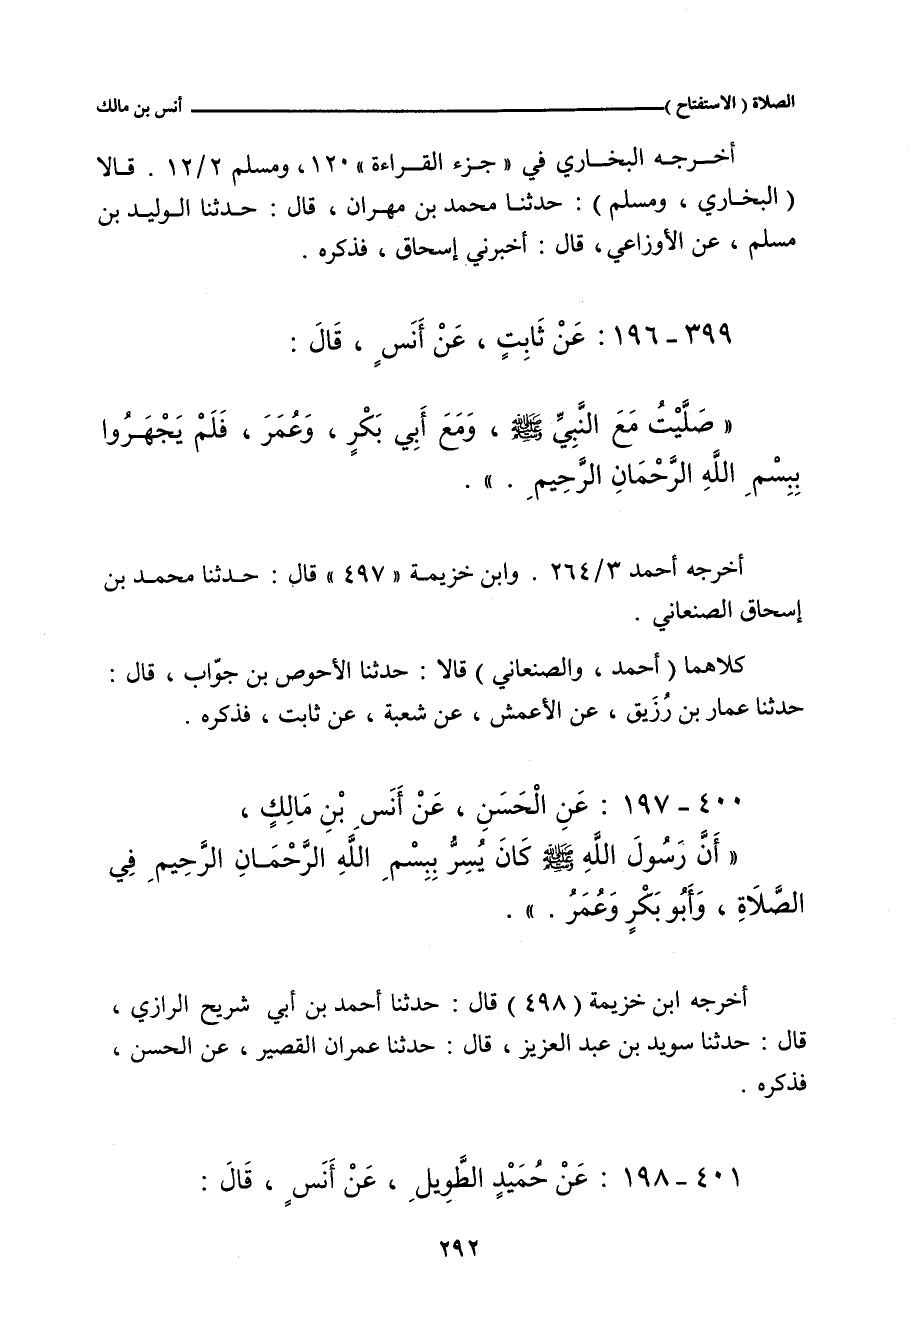 الصلاة ( الاستفتاح ) ـــــــــــــــــ أنس بن مالك
أخـرجـه البخـاري في « جـزء القـراءة » ١٢٠ ، ومسلم ١٢/٢ . قـالا
( البخـاري ، ومسلم ) : حدثنـا محمد بن مهـران ، قال : حـدثنا الـوليـد بن
مسلم ، عن الأوزاعي ، قال : أخبرني إسحاق ، فذكره .
٣٩٩ ـ ١٩٦ : عَنْ ثَابِتٍ ، عَنْ أَنَسٍ ، قَالَ :
« صَلَّيْتُ مَعَ النَّبِيِّ ﷺ ، وَمَعَ أَبِي بَكْرٍ ، وَعُمَرَ ، فَلَمْ يَجْهَـرُوا
بِبِسْمِ اللَّهِ الرَّحْمَانِ الرَّحِيمِ . » .
أخرجه أحمد ٢٦٤/٣ . وابن خزيمـة « ٤٩٧ » قال : حـدثنا محمـد بن
إسحاق الصنعاني .
كلاهما ( أحمد ، والصنعاني ) قالا : حدثنا الأحوص بن جوّاب ، قال :
حدثنا عمار بن رُزَيق ، عن الأعمش ، عن شعبة ، عن ثابت ، فذكره .
٤٠٠ ـ ١٩٧ : عَنِ الْحَسَنِ ، عَنْ أَنَسِ بْنِ مَالِكٍ ،
« أَنَّ رَسُولَ اللَّهِ ﷺ كَانَ يُسِرُّ بِبِسْمِ اللَّهِ الرَّحْمَـانِ الرَّحِيمِ فِي
الصَّلَاةِ ، وَأَبُو بَكْرٍ وَعُمَرُ . » .
أخرجه ابن خزيمة ( ٤٩٨ ) قال : حدثنا أحمد بن أبي شريح الرازي ،
قال : حدثنا سويد بن عبد العزيز ، قال : حدثنا عمران القصير ، عن الحسن ،
فذكره .
٤٠١ ـ ١٩٨ : عَنْ حُمَيْدٍ الطَّوِيلِ ، عَنْ أَنَسٍ ، قَالَ :
٢٩٢